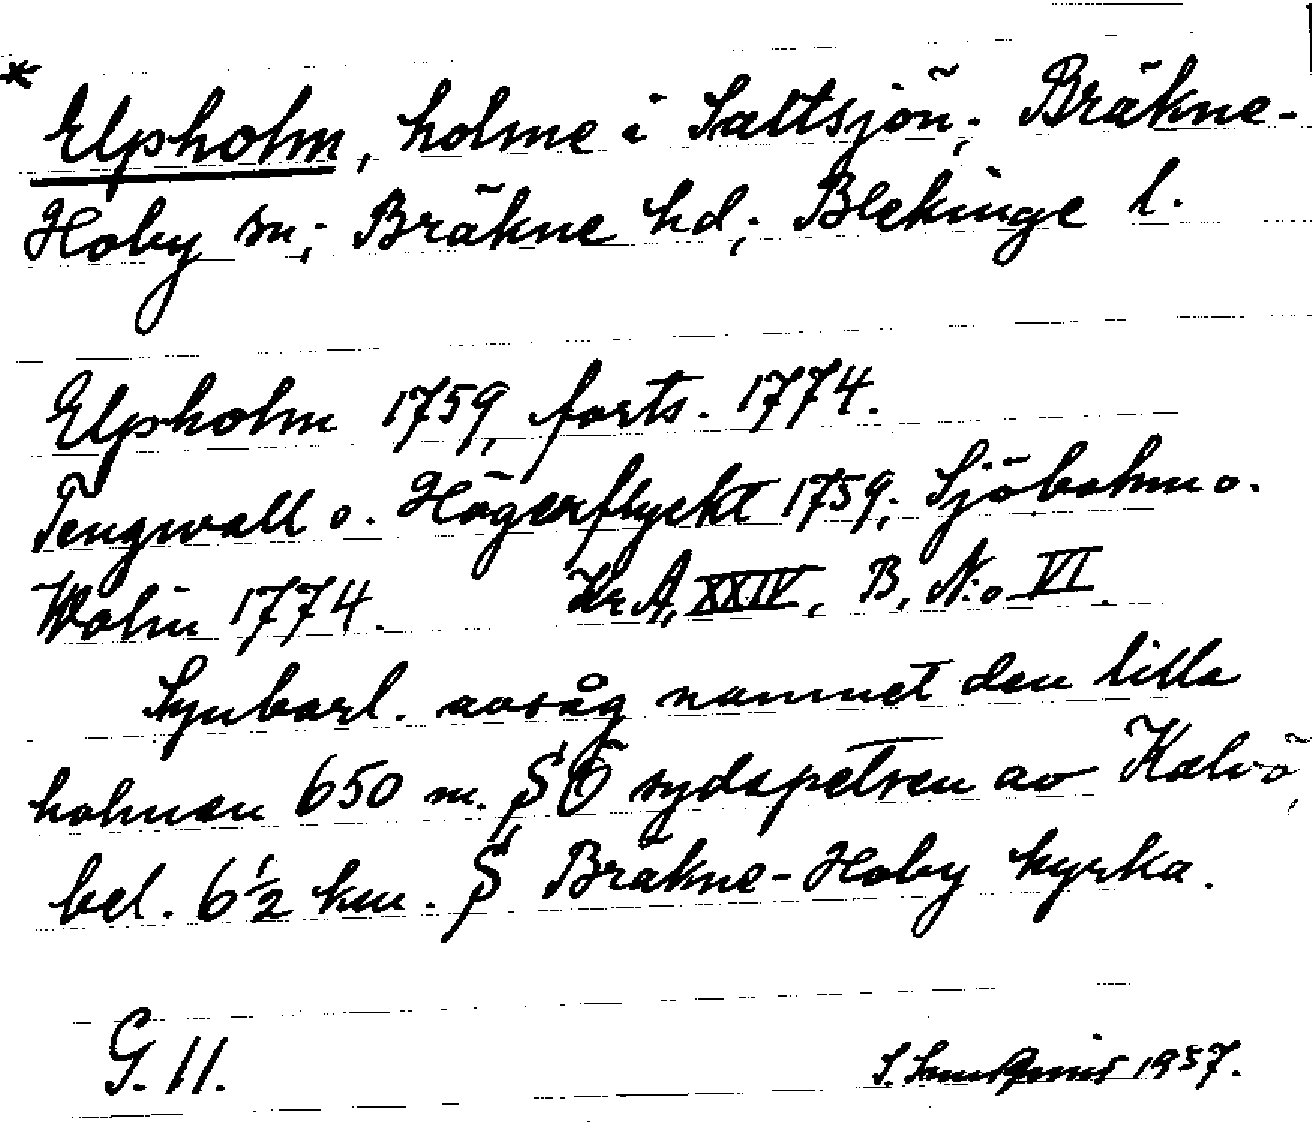 * Elpholm, holme i Saltsjön; Bräkne-
Hoby sn; Bräkne hd; Blekinge l.
Elpholm 1759, forts. 1774.
Tengwall o. Högerflyckt 1759; Sjöbohm o.
Wolin 1774. Kr.A, XXIV, B, N:o VI.
Synbarl. avsåg namnet den lilla
holmen 650 m. SÖ sydspetsen av Kalvö,
bel. 6 1/2 km. S Bräkne-Hoby kyrka.
G. 11.
1937.